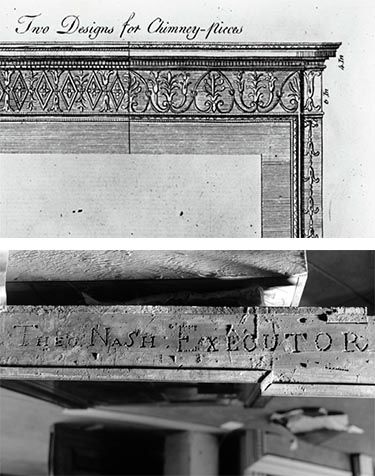 Two Designs for Chimney-pieces
4 In
6 In
THEO NASH EXECUTOR